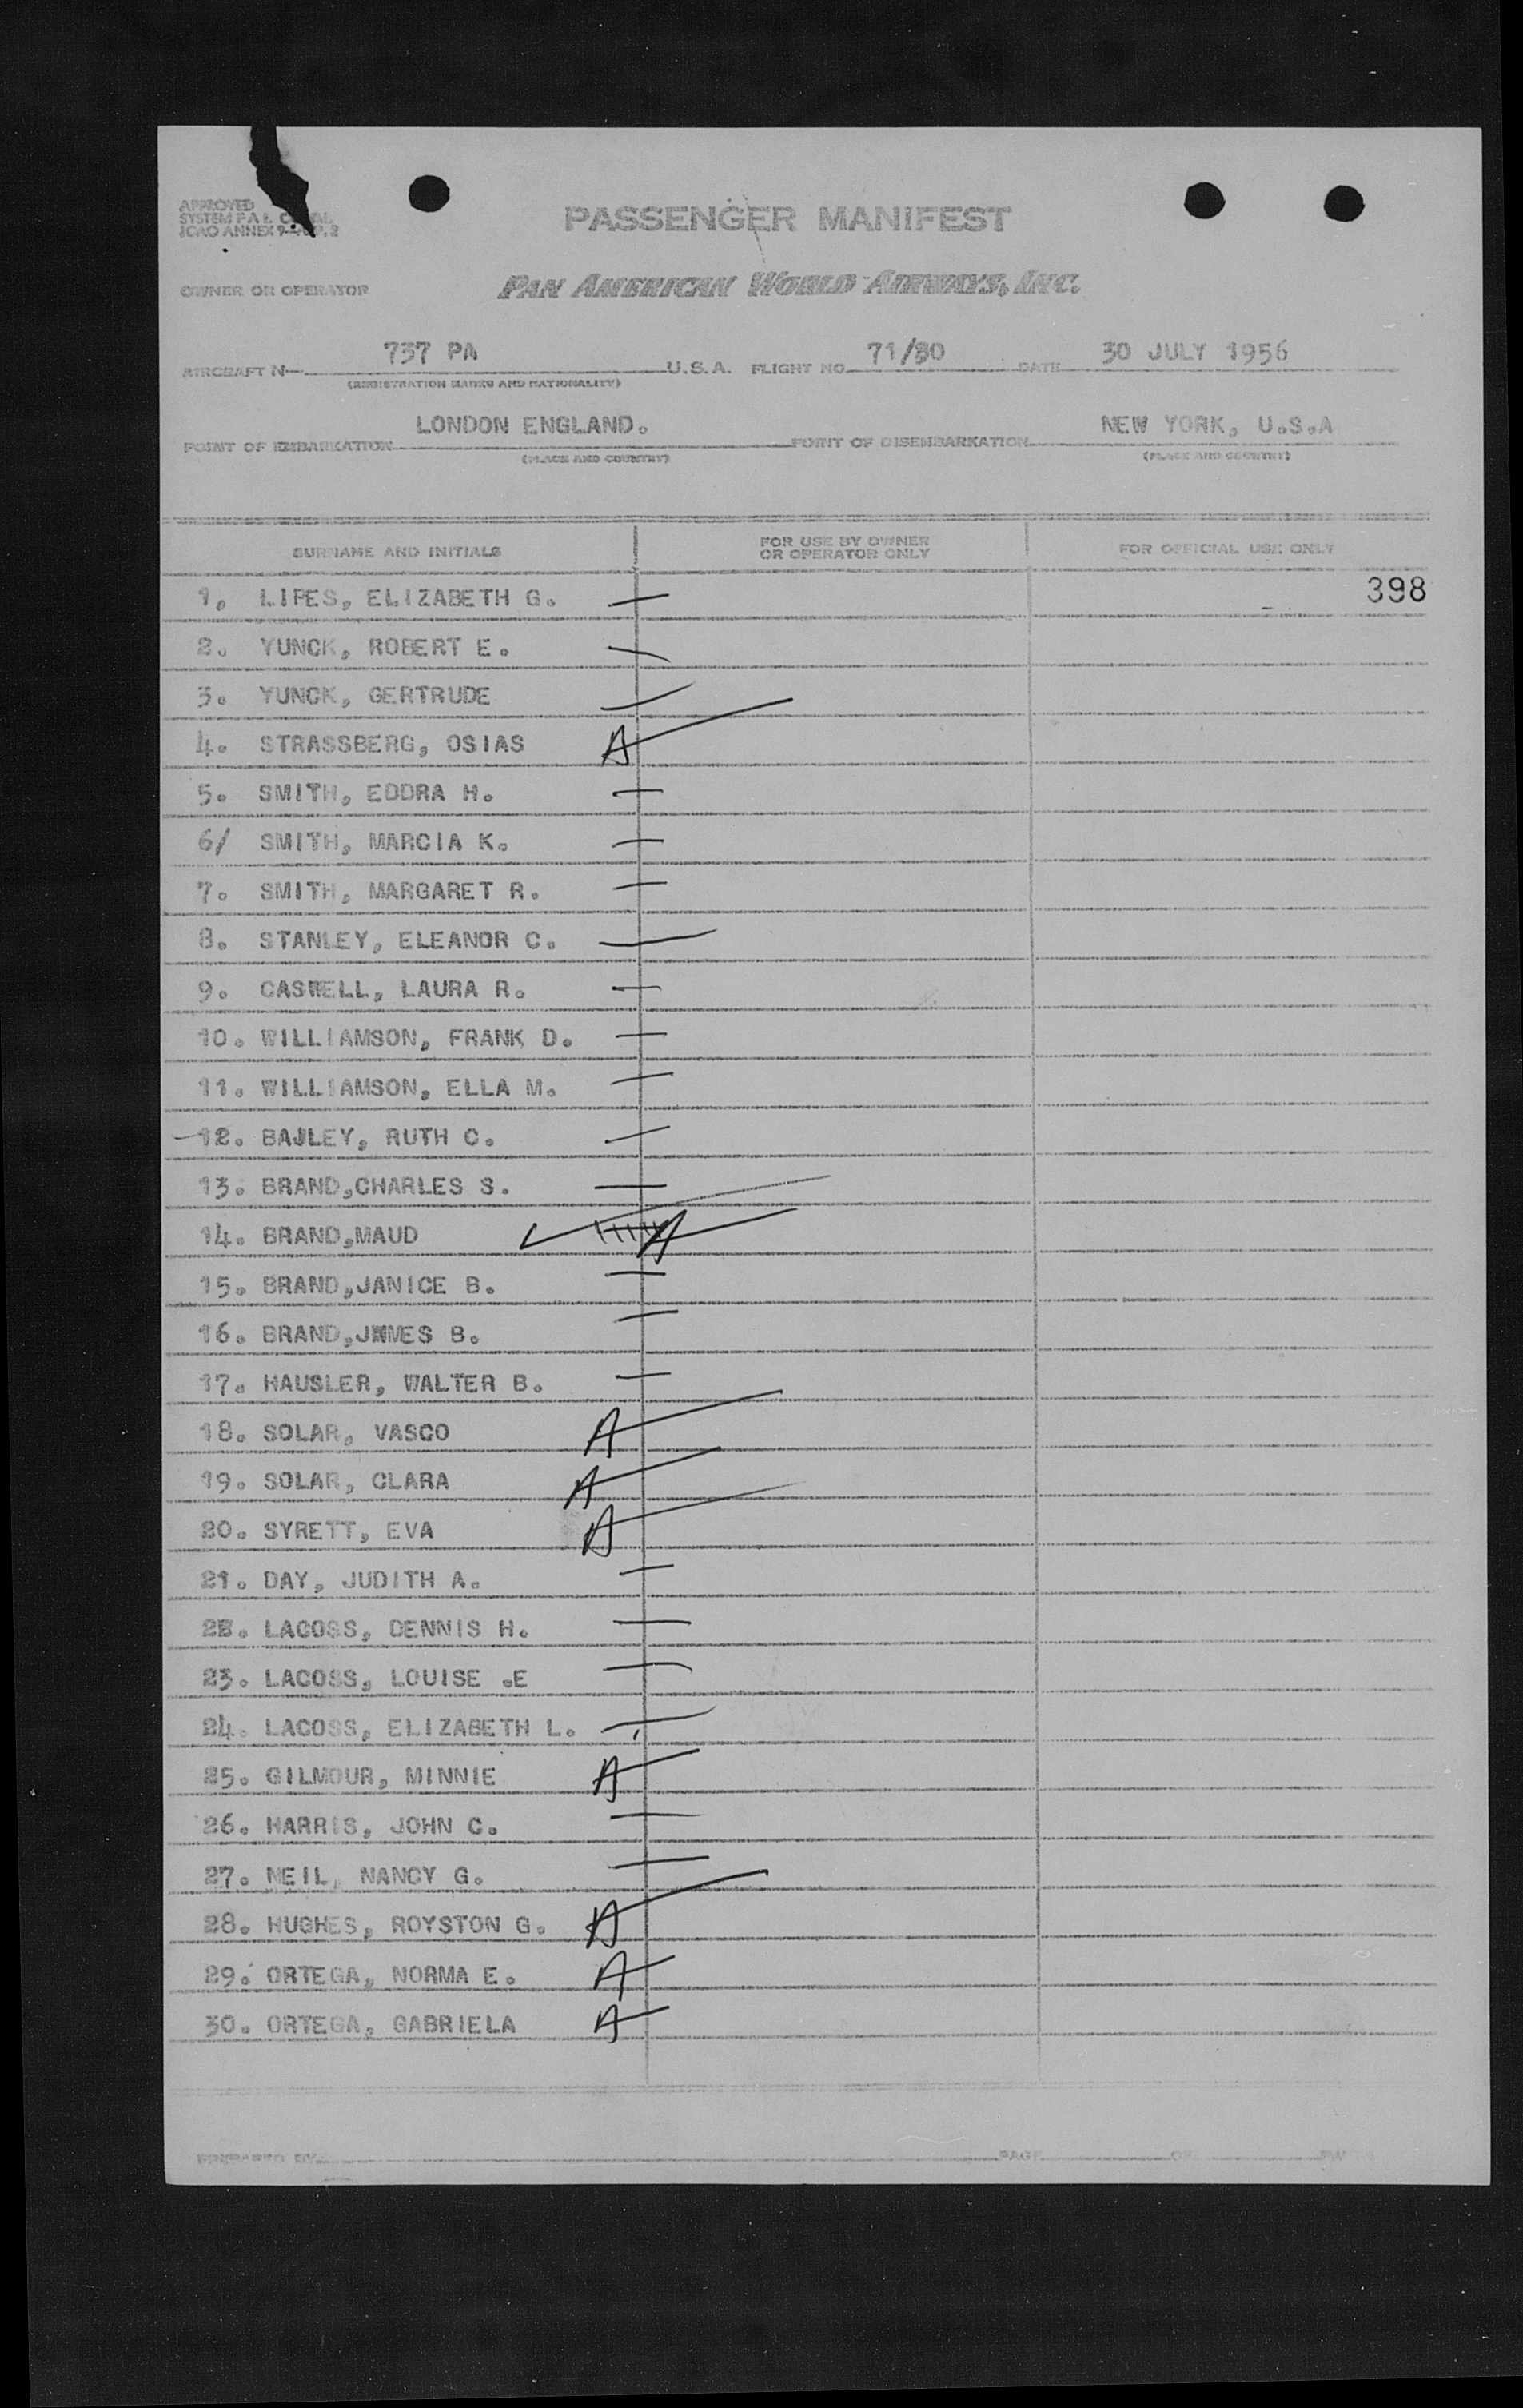 APPROVED
SYSTEM F A L
ICAO ANNEX 9
PASSENGER MANIFEST
OWNER OR OPERATOR
PAN AMERICAN WORLD AIRWAYS, INC.
AIRCRAFT N— 737 PA U.S.A. FLIGHT NO. 71/30 DATE 30 JULY 1956
(REGISTRATION MARKS AND NATIONALITY)
POINT OF EMBARKATION LONDON ENGLAND. POINT OF DISEMBARKATION NEW YORK, U.S.A
(PLACE AND COUNTRY) (PLACE AND COUNTRY)
SURNAME AND INITIALS FOR USE BY OWNER OR OPERATOR ONLY FOR OFFICIAL USE ONLY
1, LIPES, ELIZABETH G. — 398
2. YUNCK, ROBERT E. —
3. YUNCK, GERTRUDE —
4. STRASSBERG, OSIAS A
5. SMITH, EDDRA H. —
6/ SMITH, MARCIA K. —
7. SMITH, MARGARET R. —
8. STANLEY, ELEANOR C. —
9. CASWELL, LAURA R. —
10. WILLIAMSON, FRANK D. —
11. WILLIAMSON, ELLA M. —
12. BAJLEY, RUTH C. —
13. BRAND,CHARLES S. —
14. BRAND,MAUD ✓ A
15. BRAND,JANICE B. —
16. BRAND,JAMES B. —
17. HAUSLER, WALTER B. —
18. SOLAR, VASCO A
19. SOLAR, CLARA A
20. SYRETT, EVA A
21. DAY, JUDITH A. —
22. LACOSS, DENNIS H. —
23. LACOSS, LOUISE .E —
24. LACOSS, ELIZABETH L. —
25. GILMOUR, MINNIE A
26. HARRIS, JOHN C. —
27. NEIL, NANCY G. —
28. HUGHES, ROYSTON G. A
29. ORTEGA, NORMA E. A
30. ORTEGA, GABRIELA A
PREPARED BY PAGE OF